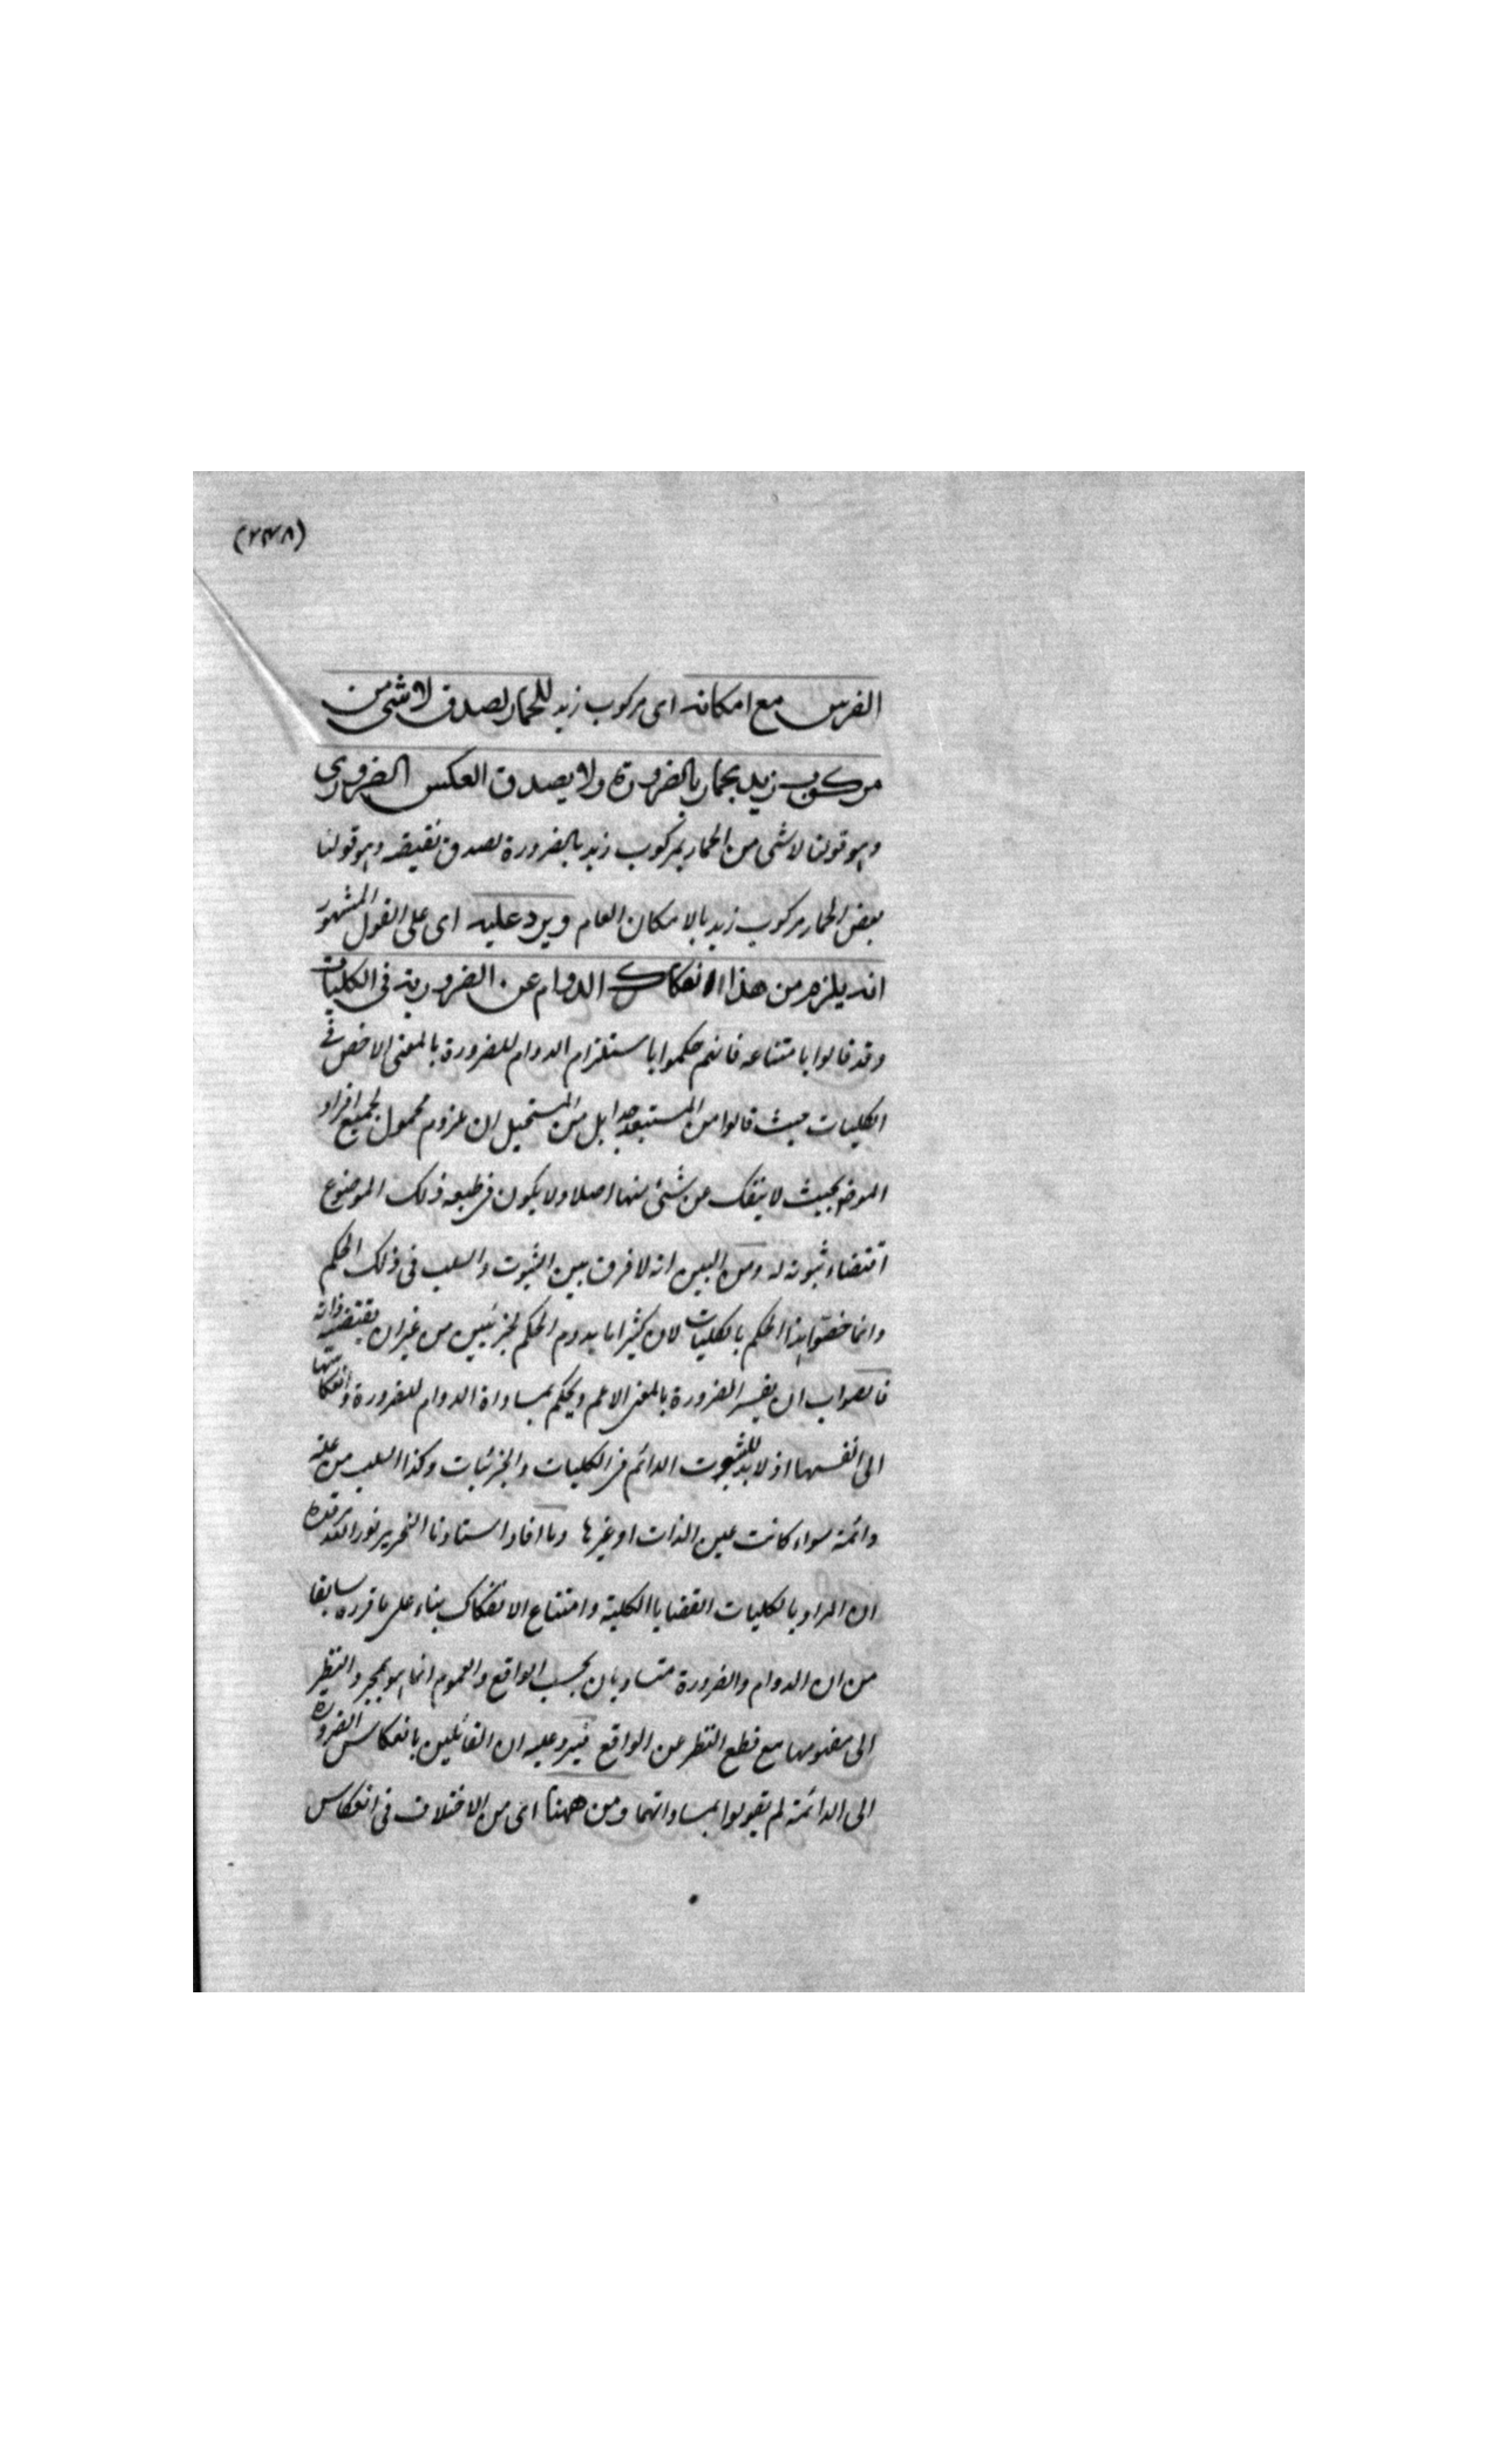 (٢٣٨)
الفرس مع امكانه اى مركوب زيد للحمار يصدق لا شئ من
مركوب زيد بحمار بالضرورة ولا يصدق العكس الضرورى
وهو قولنا لا شى من الحمار بمركوب زيد بالضرورة لصدق نقيضه وهو قولنا
بعض الحمار مركوب زيد بالامكان العام ويرد عليه اى على القول المشهور
انه يلزم من هذا انفكاك الدوام عن الضرورية فى الكليات
وقد قالوا بامتناعه فانهم حكموا باستلزام الدوام للضرورة بالمعنى الاخص فى
الكليات حيث قالوا من المستبعد جدا بل من المستحيل ان يلزم محمول لجميع افراد
الموضوع بحيث لا ينفك عن شئ منها اصلا ولا يكون فى طبيعة ذلك الموضوع
اقتضاء ثبوته له ومن البين انه لا فرق بين الثبوت والسلب فى ذلك الحكم
وانما خصّوا هذا الحكم بالكليات لان كثيرا ما يدوم الحكم لجزئيين من غير ان يقتضيه ذاته
فالصواب ان يفسر الضرورة بالمعنى الاعم ويحكم بمساواة الدوام للضرورة وانعكاسها
الى انفسها اذ لا بد للثبوت الدائم فى الكليات والجزئيات وكذا السلب من علة
دائمة سواء كانت عين الذات او غيرها وما افاد استاذنا النحرير نور الله مرقده
ان المراد بالكليات القضايا الكلية وامتناع الانفكاك بناء على ما قرره سابقا
من ان الدوام والضرورة متساويان بحسب الواقع والعموم انما هو بمجرد النظر
الى مفهومها مع قطع النظر عن الواقع فيرد عليه ان القائلين بانعكاس الضرورة
الى الدائمة لم يقولوا بمساواتهما ومن ههنا اى من الاختلاف فى انعكاس